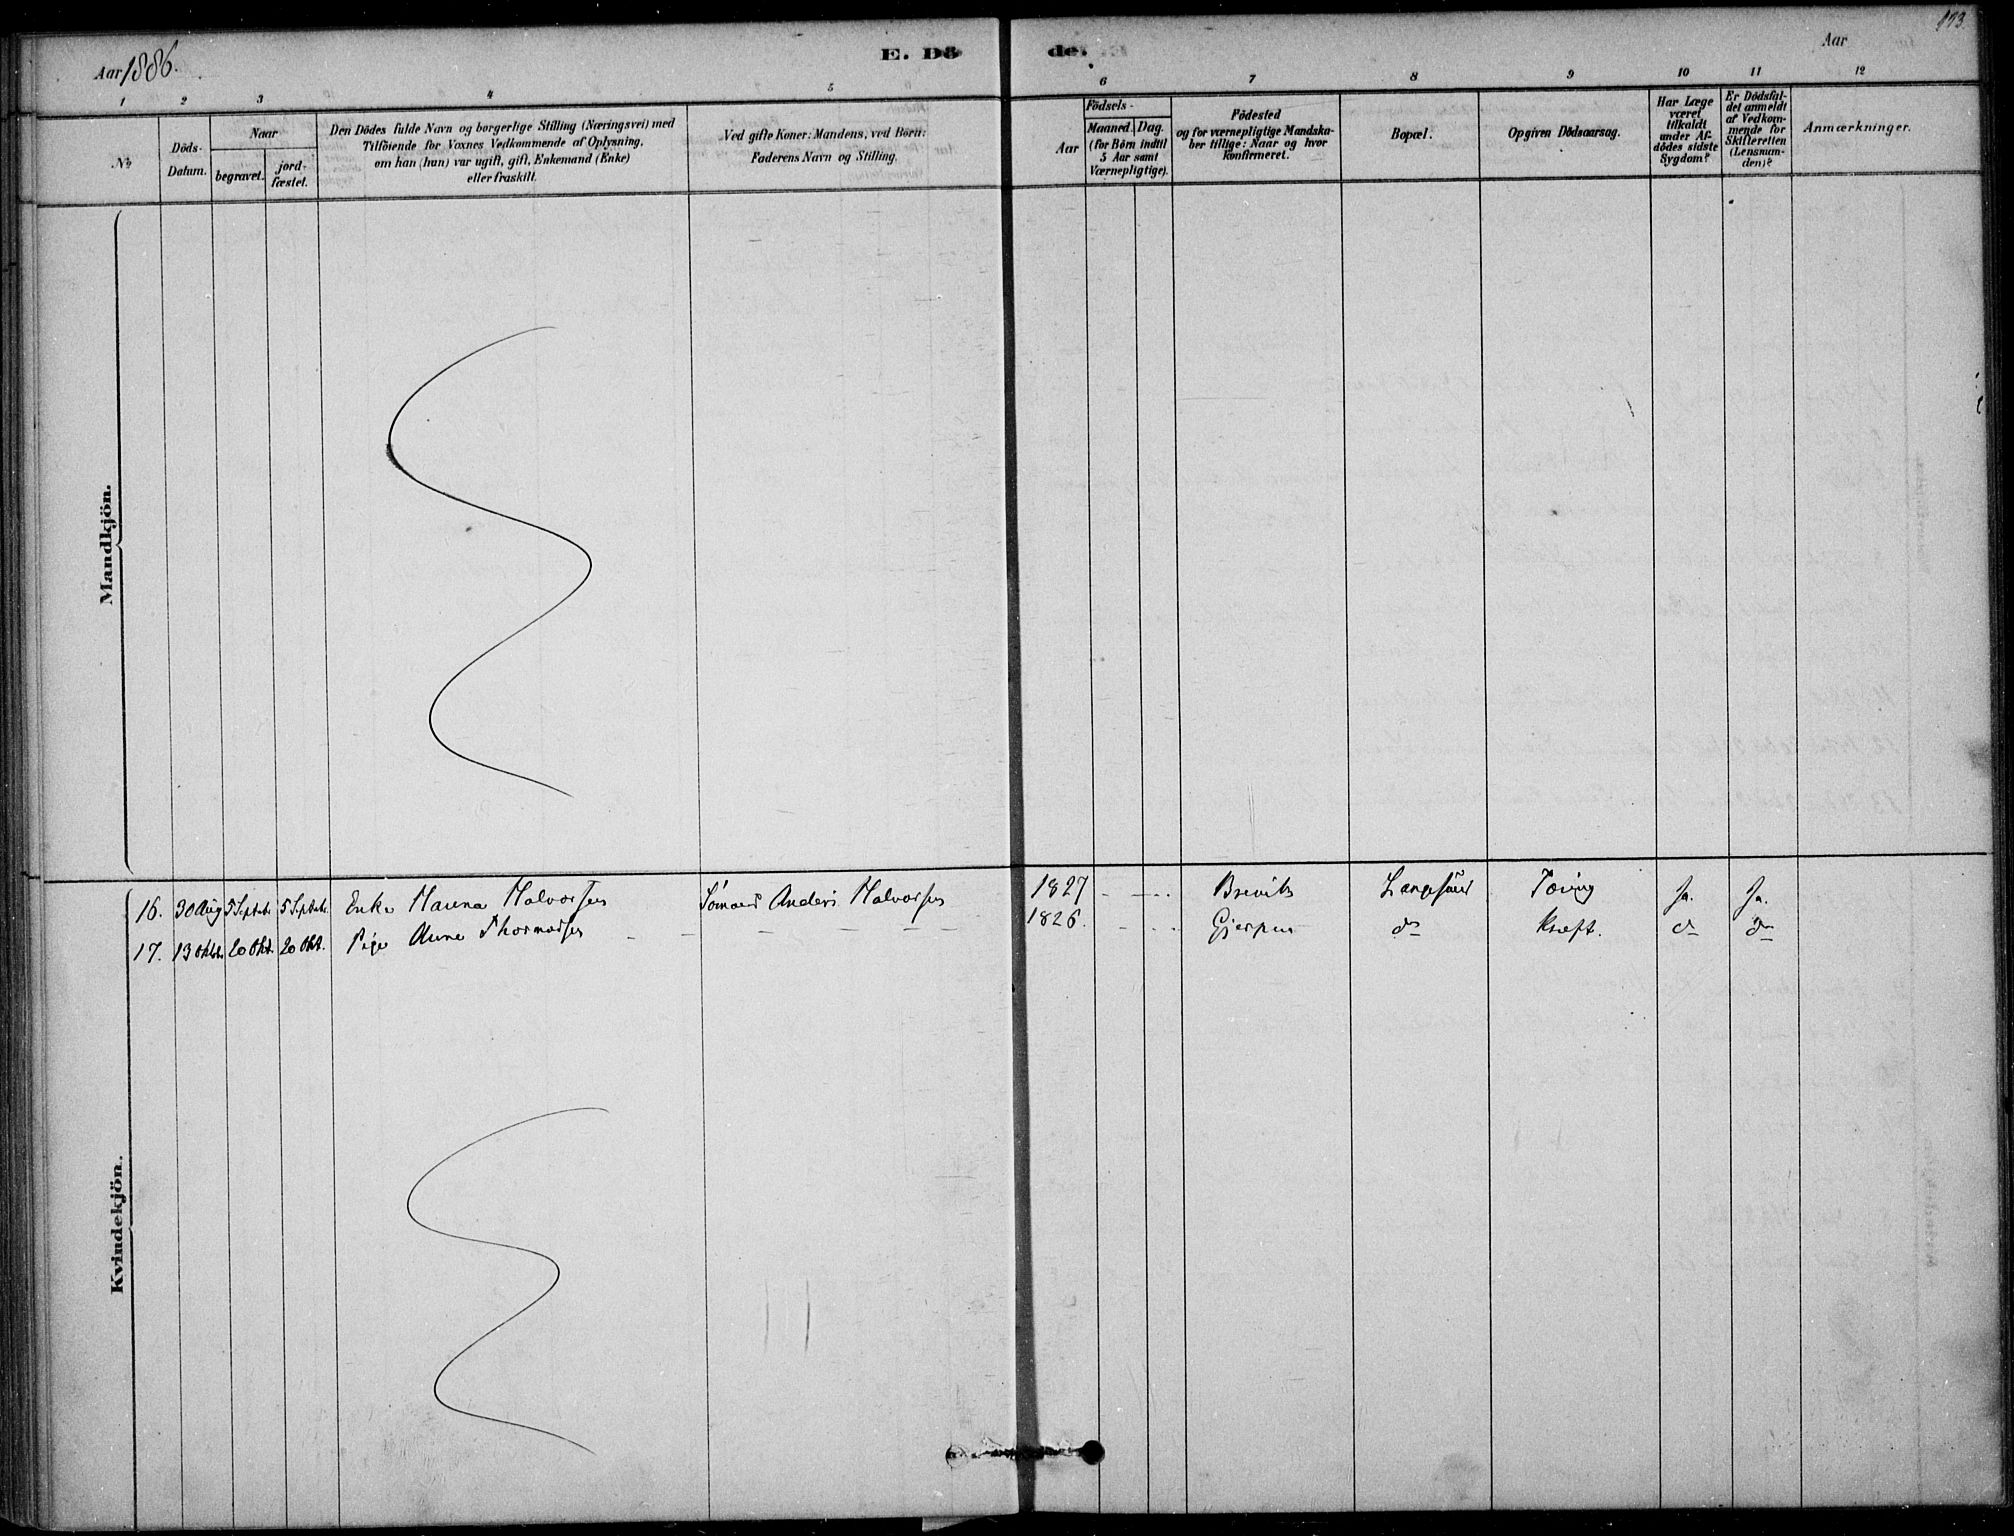 Aar 1886.
E. Dö
de.
Aar
173.
1 2 3 4 5 6 7 8 9 10 11 12
No
Döds-
Datum.
Naar
begravet.
jord-
fæstet.
Den Dödes fulde Navn og borgerlige Stilling (Næringsvei) med
Tilföiende for Voxnes Vedkommende af Oplysning,
om han (hun) var ugift, gift, Enkemand (Enke)
eller fraskilt.
Ved gifte Koner: Mandens, ved Börn:
Faderens Navn og Stilling.
Födsels-
Aar
Maaned. Dag.
(for Börn indtil
5 Aar samt
Værnepligtige).
Födested
og for værnepligtige Mandska-
ber tillige: Naar og hvor
konfirmeret.
Bopæl.
Opgiven Dödsaarsag.
Har Læge
været
tilkaldt
under Af-
dödes sidste
Sygdom?
Er Dödsfal-
det anmeldt
af Vedkom-
mende for
Skifteretten
(Lensman-
den)?
Anmærkninger.
Mandkjön.
16. 30 Aug 5 Septbr. 5 Septbr. Enke Hanna Halvorsen Sömand Anders Halvorsen 1827 - - - Brevik Langesund Tæring Ja. Ja.
17. 13 Oktb. 20 Okt. 20 Okt. Pige Anne Thormodsen - - - - - - 1826. - - - Gjerpen do Kræft. do do
Kvindekjön.